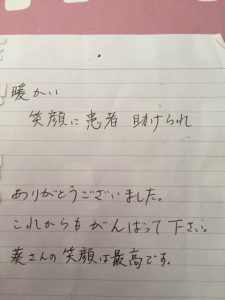 暖かい
笑顔に患者 助けられ
ありがとうございました。
これからもがんばって下さい。
葵さんの笑顔は最高です。